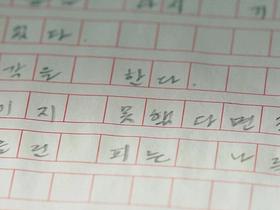 다시 기
있다.
각을 한다.
이지 못했다면
피는 나